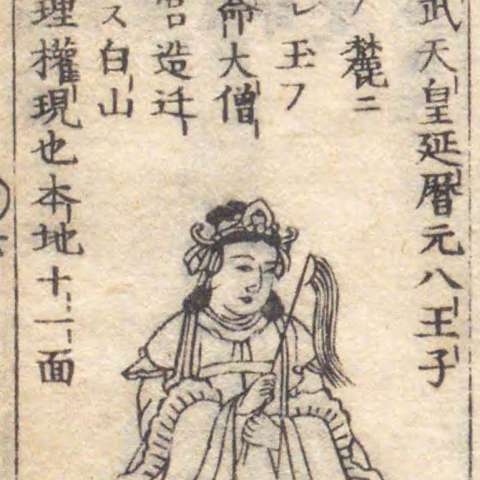 武天皇延暦元八王子
麓ニ
レ玉フ
命大僧
造迁
ス白山
理權現也本地十一面